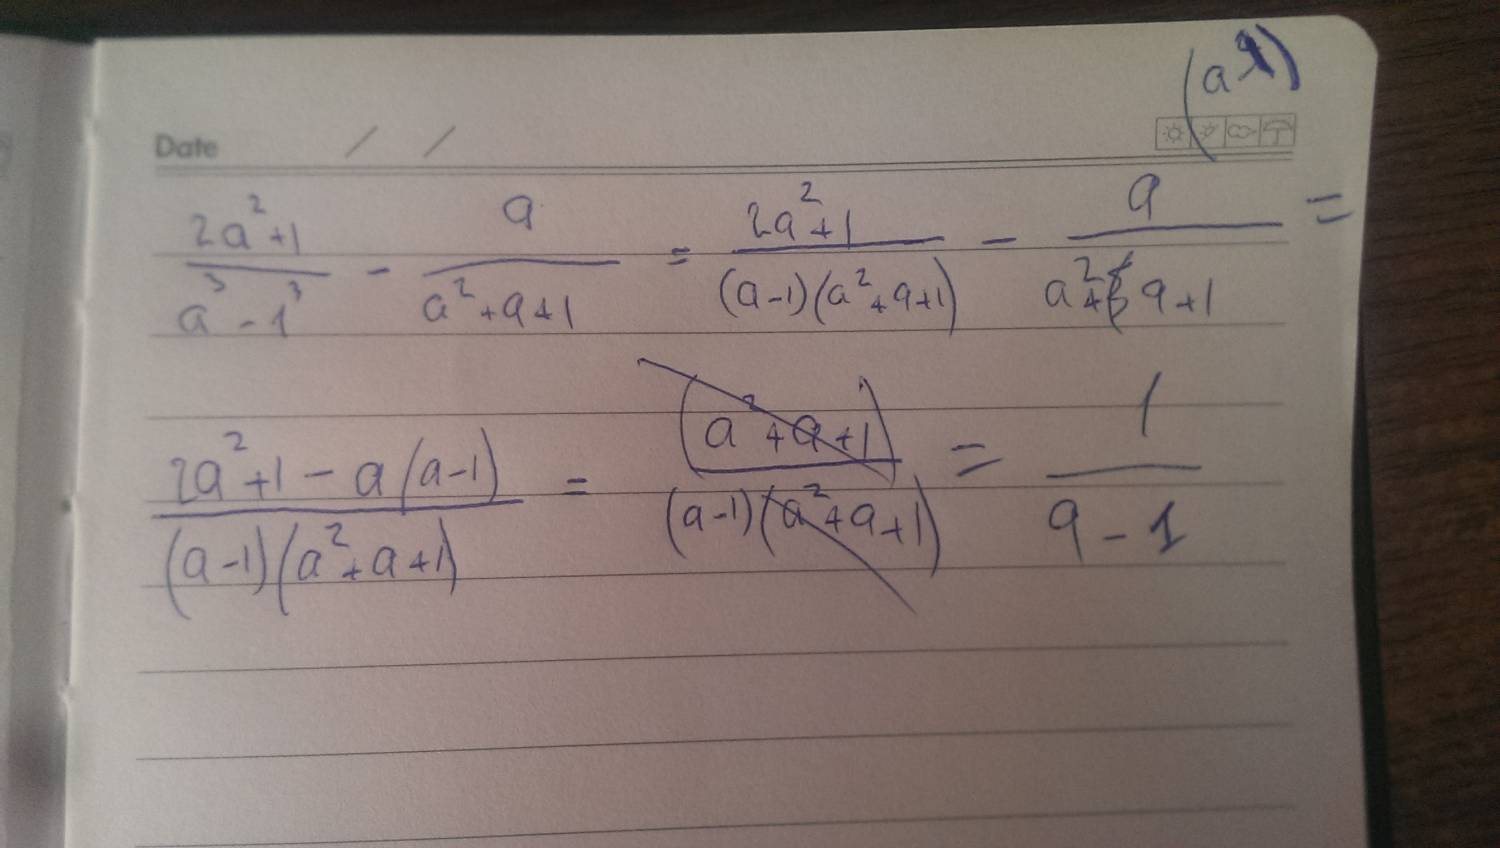 (a
Date / /
(2a²+1)/(a³-1³) - a/(a²+a+1) = (2a²+1)/((a-1)(a²+a+1)) - a/(a²+a+1) =
(2a²+1-a(a-1))/((a-1)(a²+a+1)) = (a²+a+1)/((a-1)(a²+a+1)) = 1/(a-1)